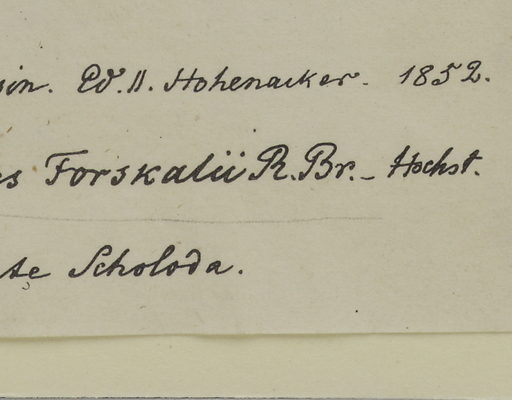 sin. Ed. II. Hohenacker. 1852.
es Forskalii R. Br. - Hochst.
te Scholoda.